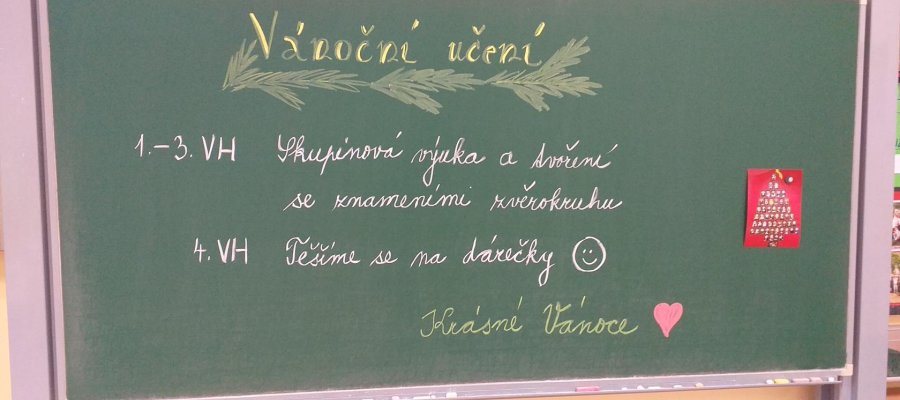 Vánoční učení
1.-3. VH Skupinová výuka a tvoření
se znameními zvěrokruhu
4. VH Těšíme se na dárečky
Krásné Vánoce